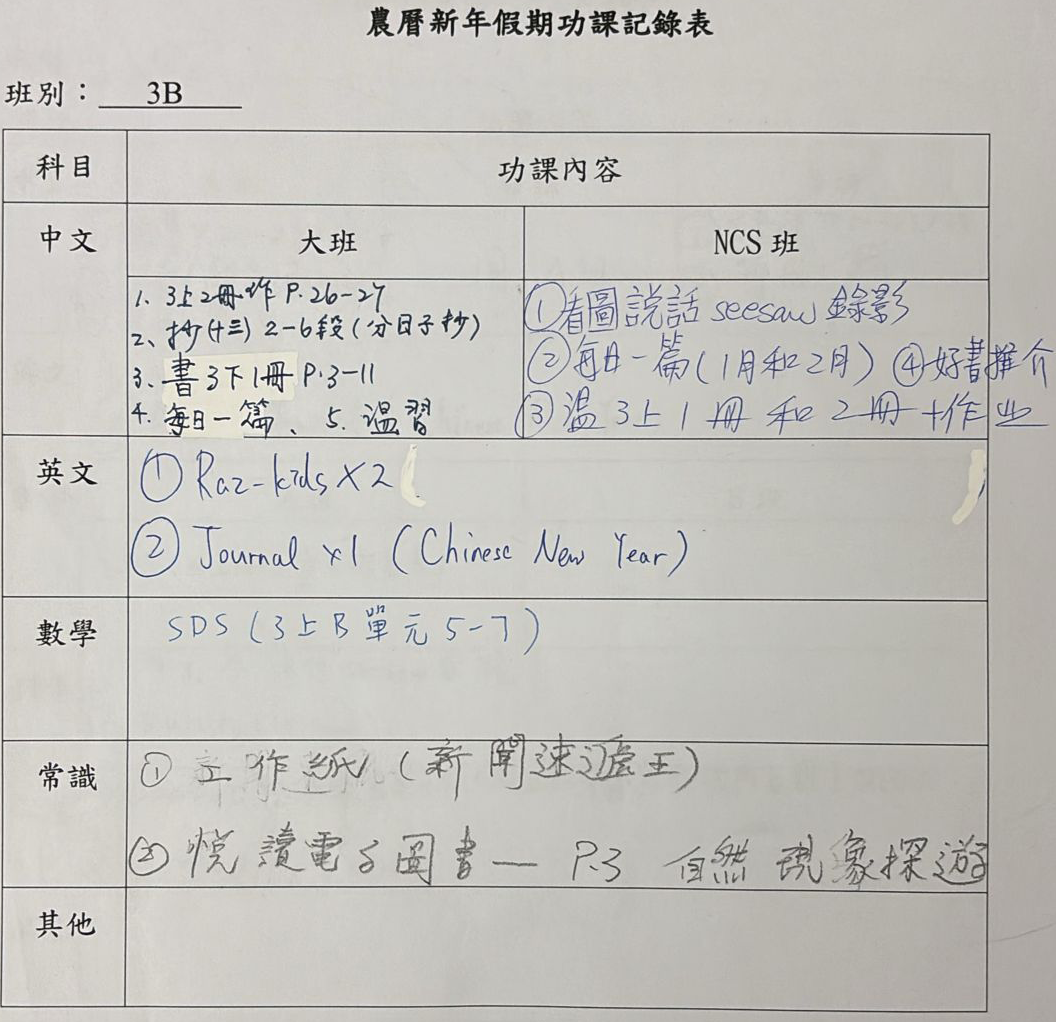 農曆新年假期功課記錄表
班別：3B
科目
功課內容
中文
大班
NCS 班
1、3上2冊作 P.26-27
2、抄(十三) 2-6段(分日子抄)
3、書3下1冊 P.3-11
4. 每日一篇、5. 溫習
①看圖説話 seesaw 錄影
②每日一篇(1月和2月) ④好書推介
③溫3上1冊和2冊+作业
英文
① Raz-kids X2
② Journal x1 (Chinese New Year)
數學
SDS (3上B單元5-7)
常識
① 工作紙 (新聞速遞王)
② 悅讀電子圖書 — P.3 自然現象探遊
其他